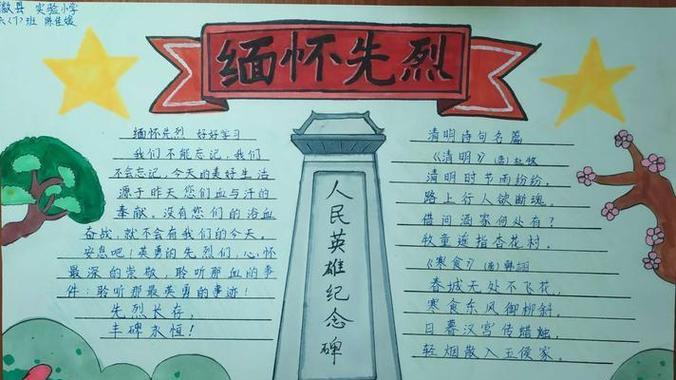 徽县 实验小学
班 陈佳媛
缅怀先烈
缅怀先烈 好好学习
我们不能忘记,我们
不会忘记,今天的美好生活
源于昨天您们血与汗的
奉献,没有您们的浴血
奋战,就不会有我们的今天。
安息吧!英勇的先烈们,心怀
最深的崇敬,聆听那血的事
件;聆听那最英勇的事迹!
先烈长存,
丰碑永恒!
人民英雄纪念碑
清明诗句名篇
《清明》(唐)杜牧
清明时节雨纷纷,
路上行人欲断魂。
借问酒家何处有?
牧童遥指杏花村。
《寒食》(唐)韩翃
春城无处不飞花,
寒食东风御柳斜。
日暮汉宫传蜡烛,
轻烟散入五侯家。